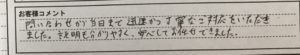 お客様コメント
問い合わせから当日まで迅速かつ丁寧なご対応をいただき
ました。ご説明も分かりやすく、安心してお任せできました。